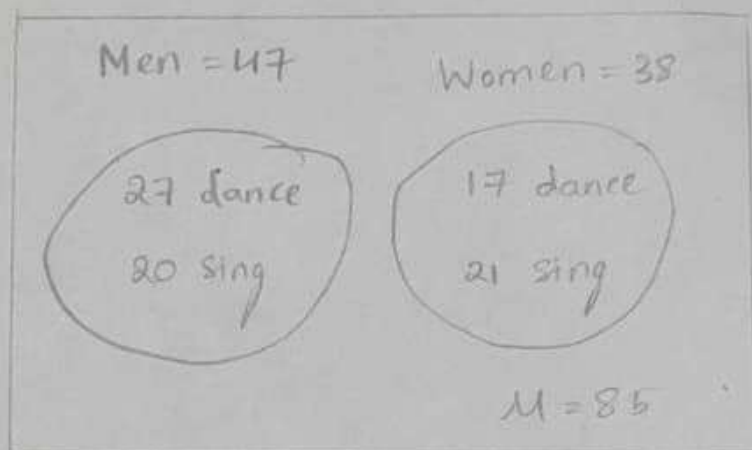 Men = 47
Women = 38
27 dance
20 sing
17 dance
21 sing
M = 85